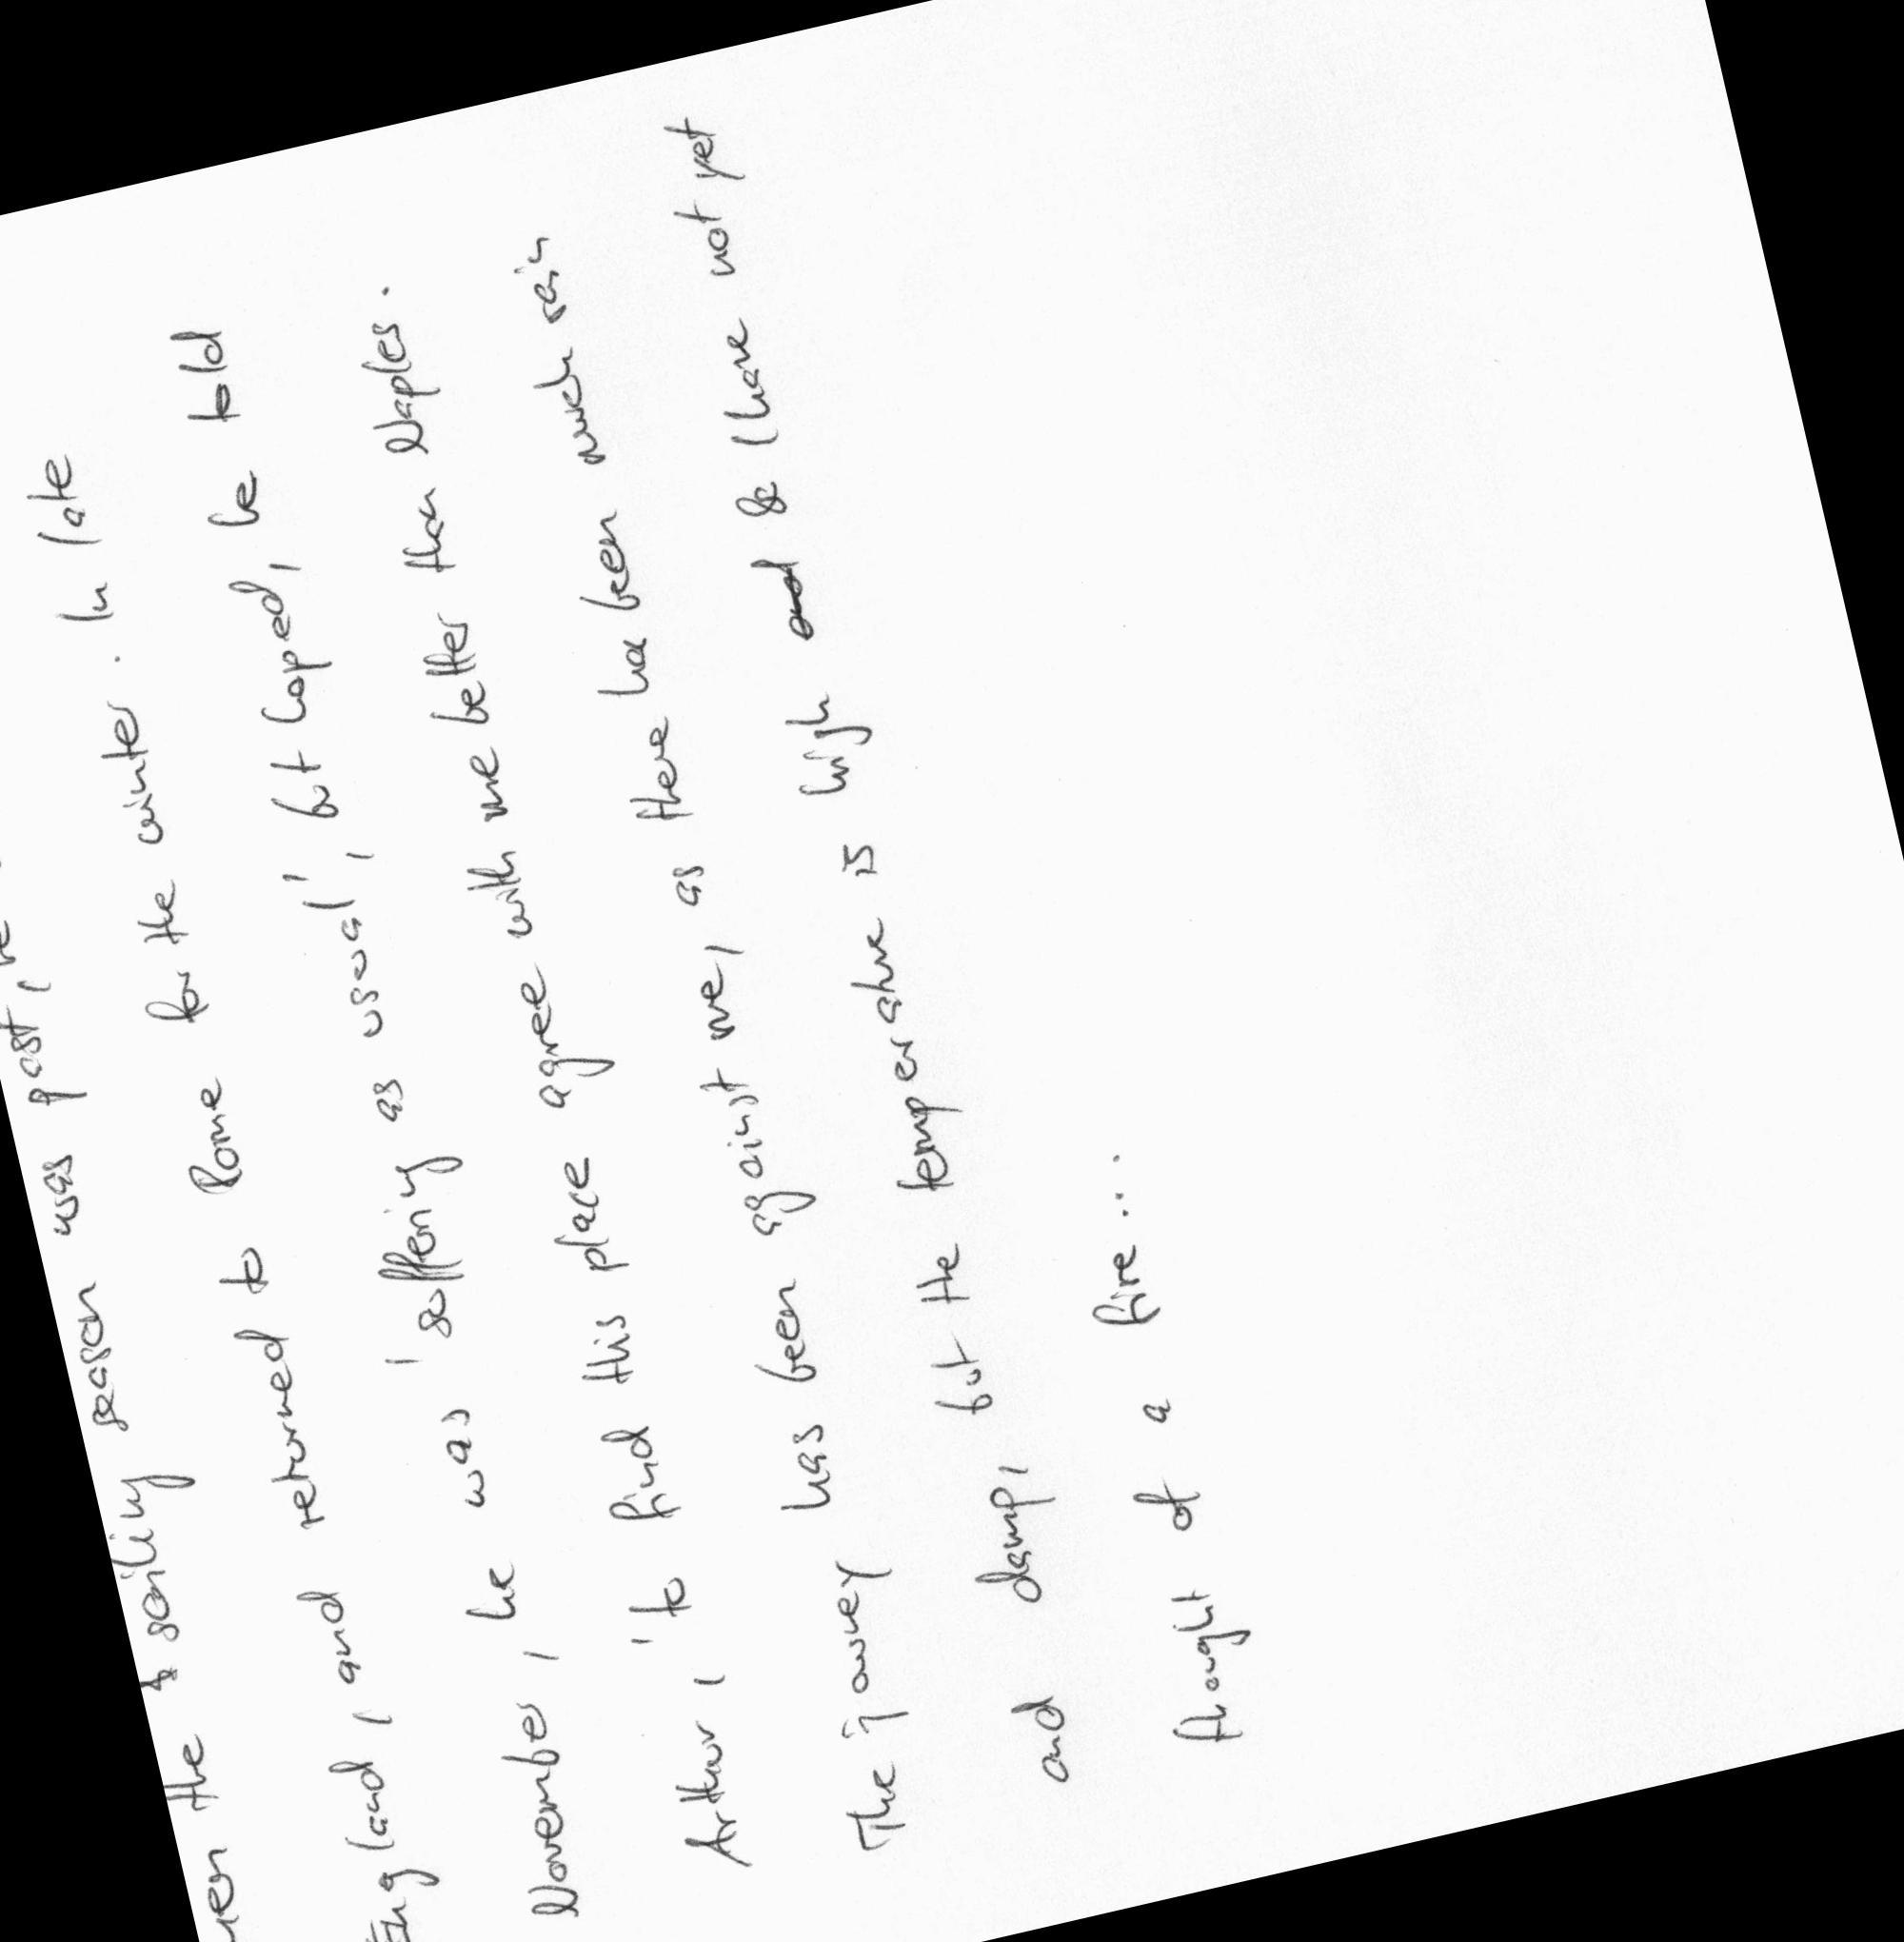 the sailing season was past, he
England, and returned to Rome for the winter. In late
November, he was 'suffering as usual', but hoped, he told
Arthur, 'to find this place agree with me better than Naples.
The jouney has been against me, as there ha been much rain
and damp, but the temperature is high & I have not yet
thought of a fire...